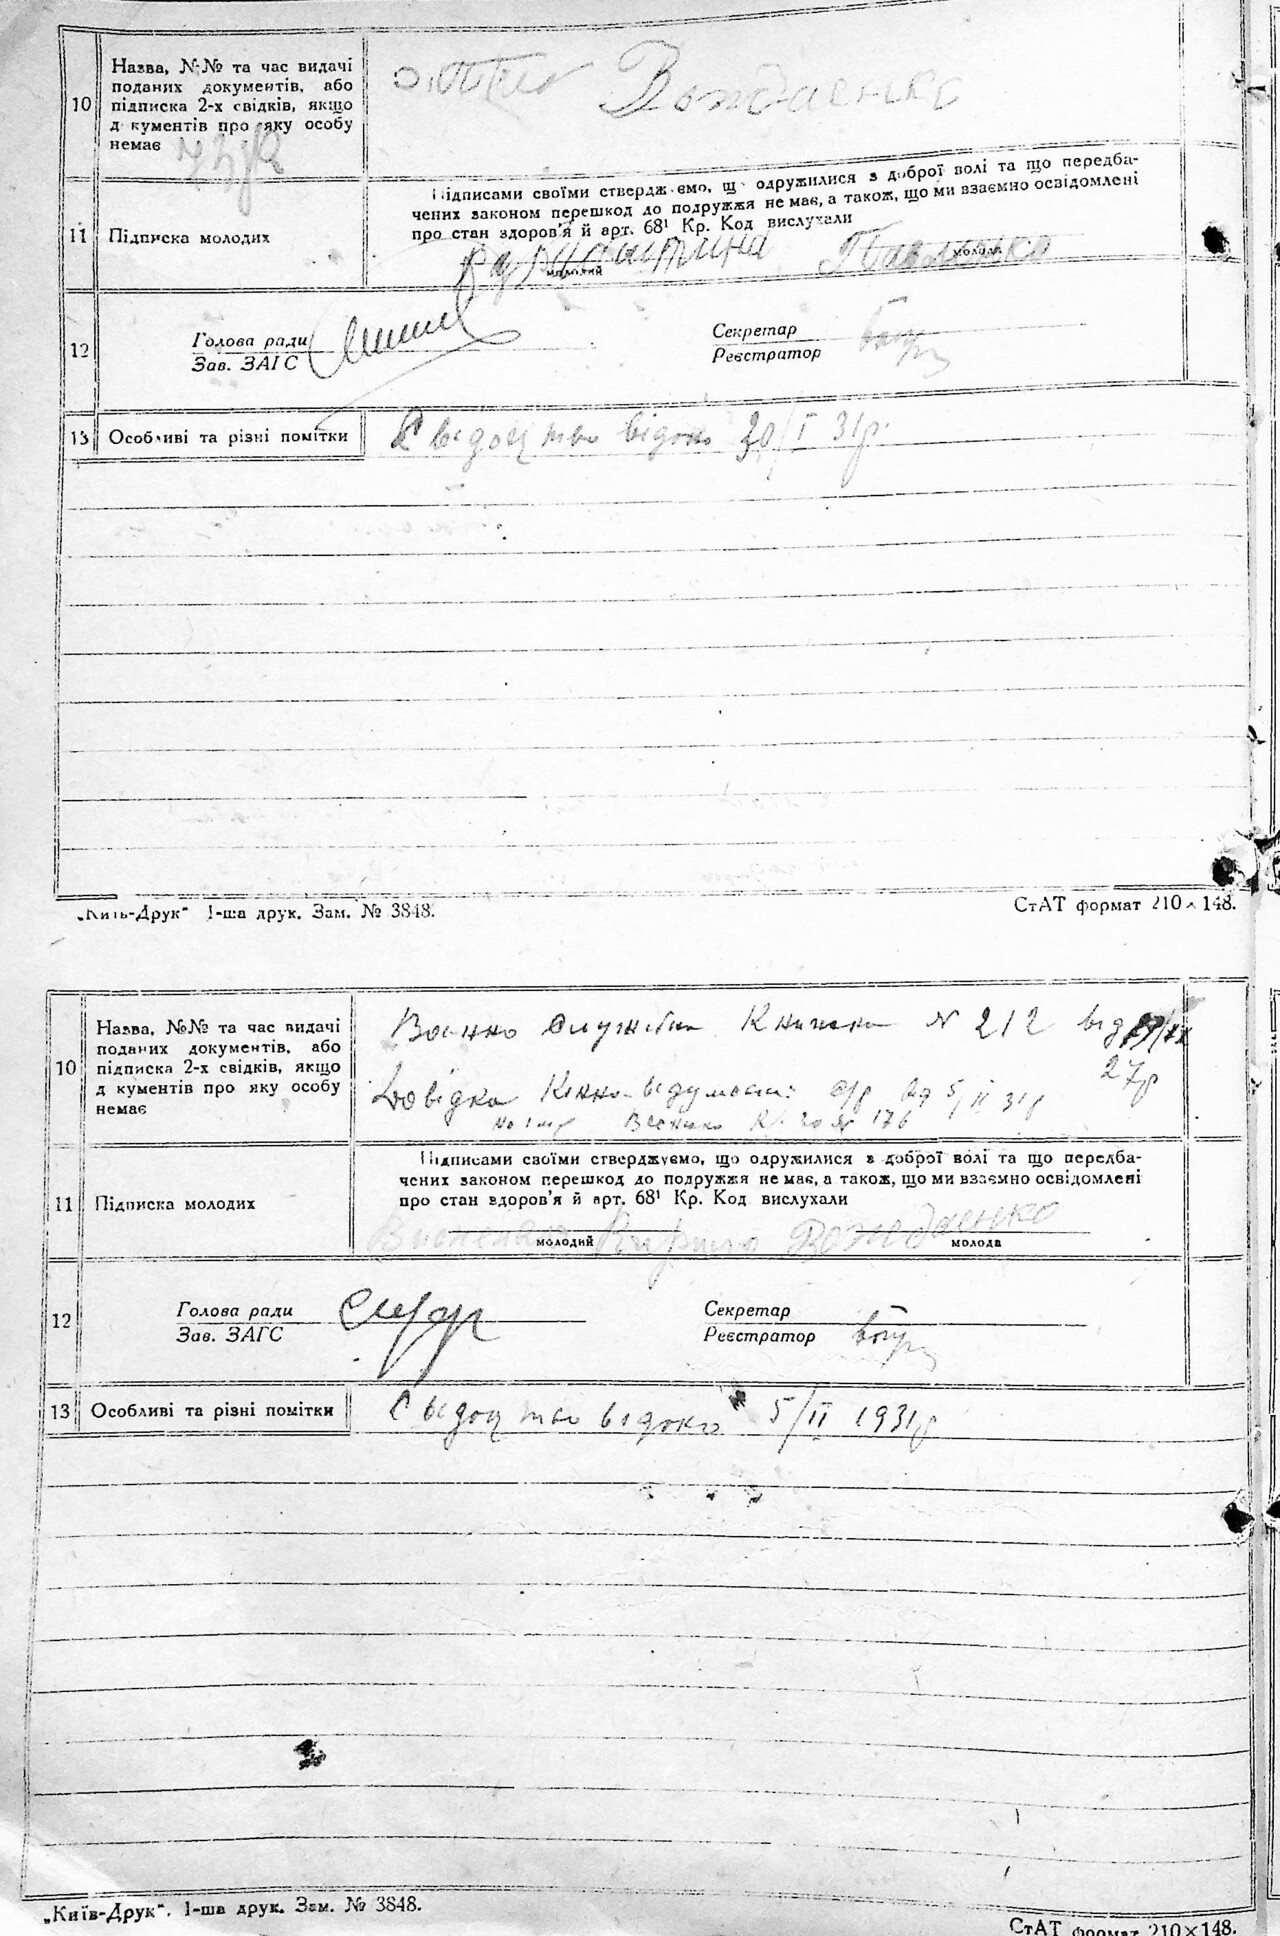 10
Назва, №№ та час видачі
поданих документів, або
підписка 2-х свідків, якщо
д кументів про яку особу
немає
Вождаенко
11
Підписка молодих
Підписами своїми стверджуємо, що одружилися з доброї волі та що передба-
чених законом перешкод до подружжя немає, а також, що ми взаємно освідомлені
про стан здоров'я й арт. 68¹ Кр. Код вислухали
Павленко
молодий
молода
12
Голова ради
Зав. ЗАГС
Секретар
Реєстратор
13
Особливі та різні помітки
Свідоцтво видано 30/I 31р.
„Київ-Друк“ 1-ша друк. Зам. № 3848.
СтАТ формат 210×148.
10
Назва, №№ та час видачі
поданих документів, або
підписка 2-х свідків, якщо
д кументів про яку особу
немає
Военно Книжка № 212 від
27р
Довідка с/р від 5/II 31р
176
11
Підписка молодих
Підписами своїми стверджуємо, що одружилися з доброї волі та що передба-
чених законом перешкод до подружжя немає, а також, що ми взаємно освідомлені
про стан здоров'я й арт. 68¹ Кр. Код вислухали
Кирило Вождаенко
молодий
молода
12
Голова ради
Зав. ЗАГС
Секретар
Реєстратор
13
Особливі та різні помітки
Свідоцтво видано 5/II 1931р
„Київ-Друк“. 1-ша друк. Зам. № 3848.
СтАТ формат 210×148.